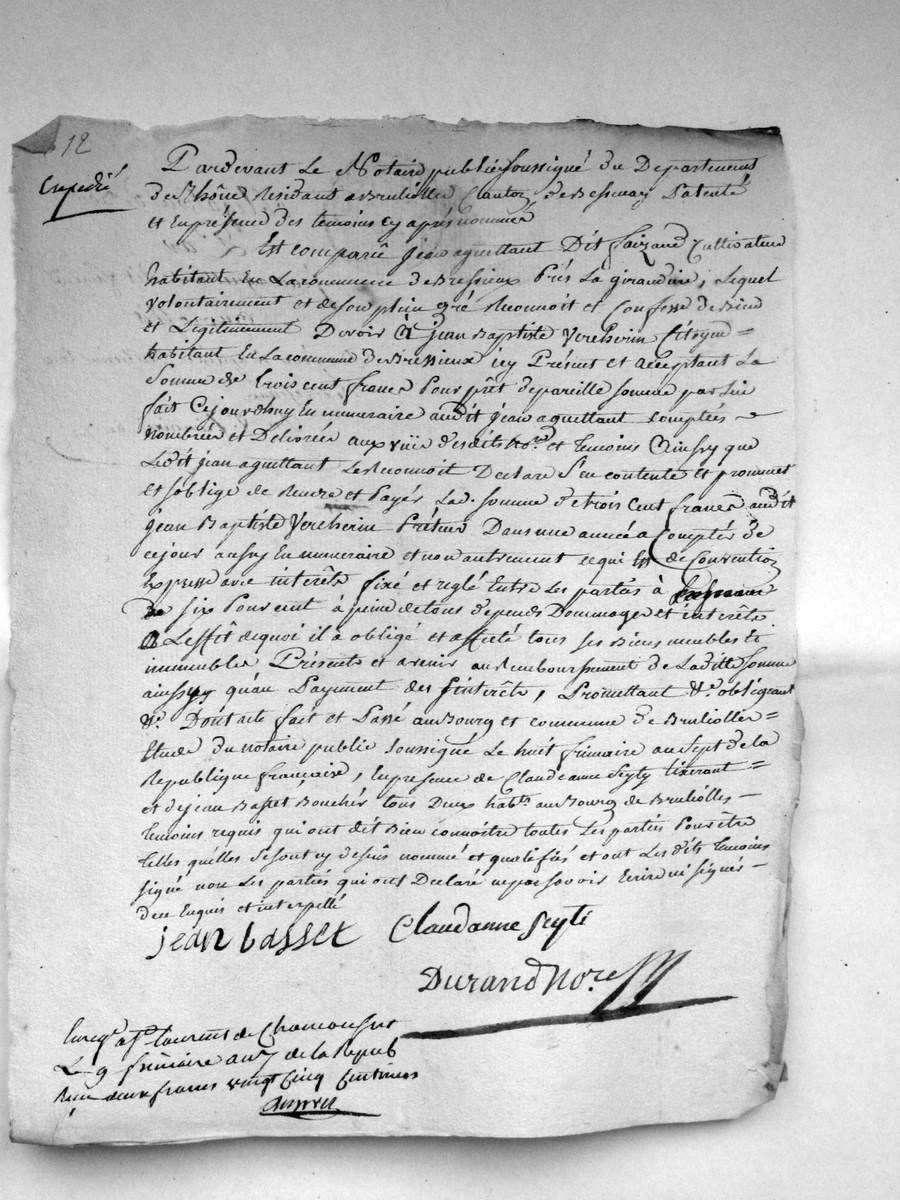 12
Expedié
Pardevant Le Notaire public Soussigné du Departement
de Rhône Residant a Brulliolles Canton de Bessenay Patenté
et En présence des temoins cy après nommés
Est comparu jean aguettant Dit faizand Cultivateur
habitant En La commune de Bressieux Près La girandiere, Lequel
volontairement et de son plein gré Reconnoit et Confesse de Bien
et Legitimement Devoir à jean Baptiste Vercherin Citoyen =
habitant En La commune de Bressieux icy Présent et acceptant La
Somme de trois cent francs Pour prêt de pareille somme par lui
fait Cejourdhuy En numeraire audit jean aguettant Comptée
Nombrée et Delivrée aux vüe desdits Nore et temoins Ainssy que
Ledit jean aguettant Le Reconnoit Declare s'en contente et promet
et soblige de Rendre et Payér Lad. somme de trois Cent francs audit
jean Baptiste Vercherin Prêteur Dans une année a Comptér de
cejour aussy En numeraire et non autrement ce qui Est de Convention
Expresse avec intérêts fixé et reglé Entre Les parties à
de six Pour cent à peine de tous depends Dommages et interêts
A L'effêt de quoi il à obligé et affecté tous ses Biens meubles et
immeubles Présents et avenir au Remboursement de Laditte Somme
ainssy qu'au Payement des interêts, Promettant &c. obligeant
&c. Dont acte fait et Passé au Bourg et commune de Brulliolles =
Etude du notaire public Soussigné Le huit frimaire an Sept de La
Republique française, En presence de Claudeanne Seyty tixerant =
et de jean Basset Bouchér tous Deux habts. au Bourg de Brulliolles –
temoins requis qui ont dit Bien connoitre toutes Les parties Pour être
telles quélles se sont cy dessus nommé et qualifiés et ont Les dits temoins
signé non Les parties qui ont Declaré ne pas savoir Ecrire ni signér –
de ce Enquis et interpellé
jean basset Claudanne Seyti
Durand Nore
Enregé. a St. Laurent de Chamousset
Le 9 frimaire an 7 de la Repub
Reçu deux francs vingt Cinq Centimes